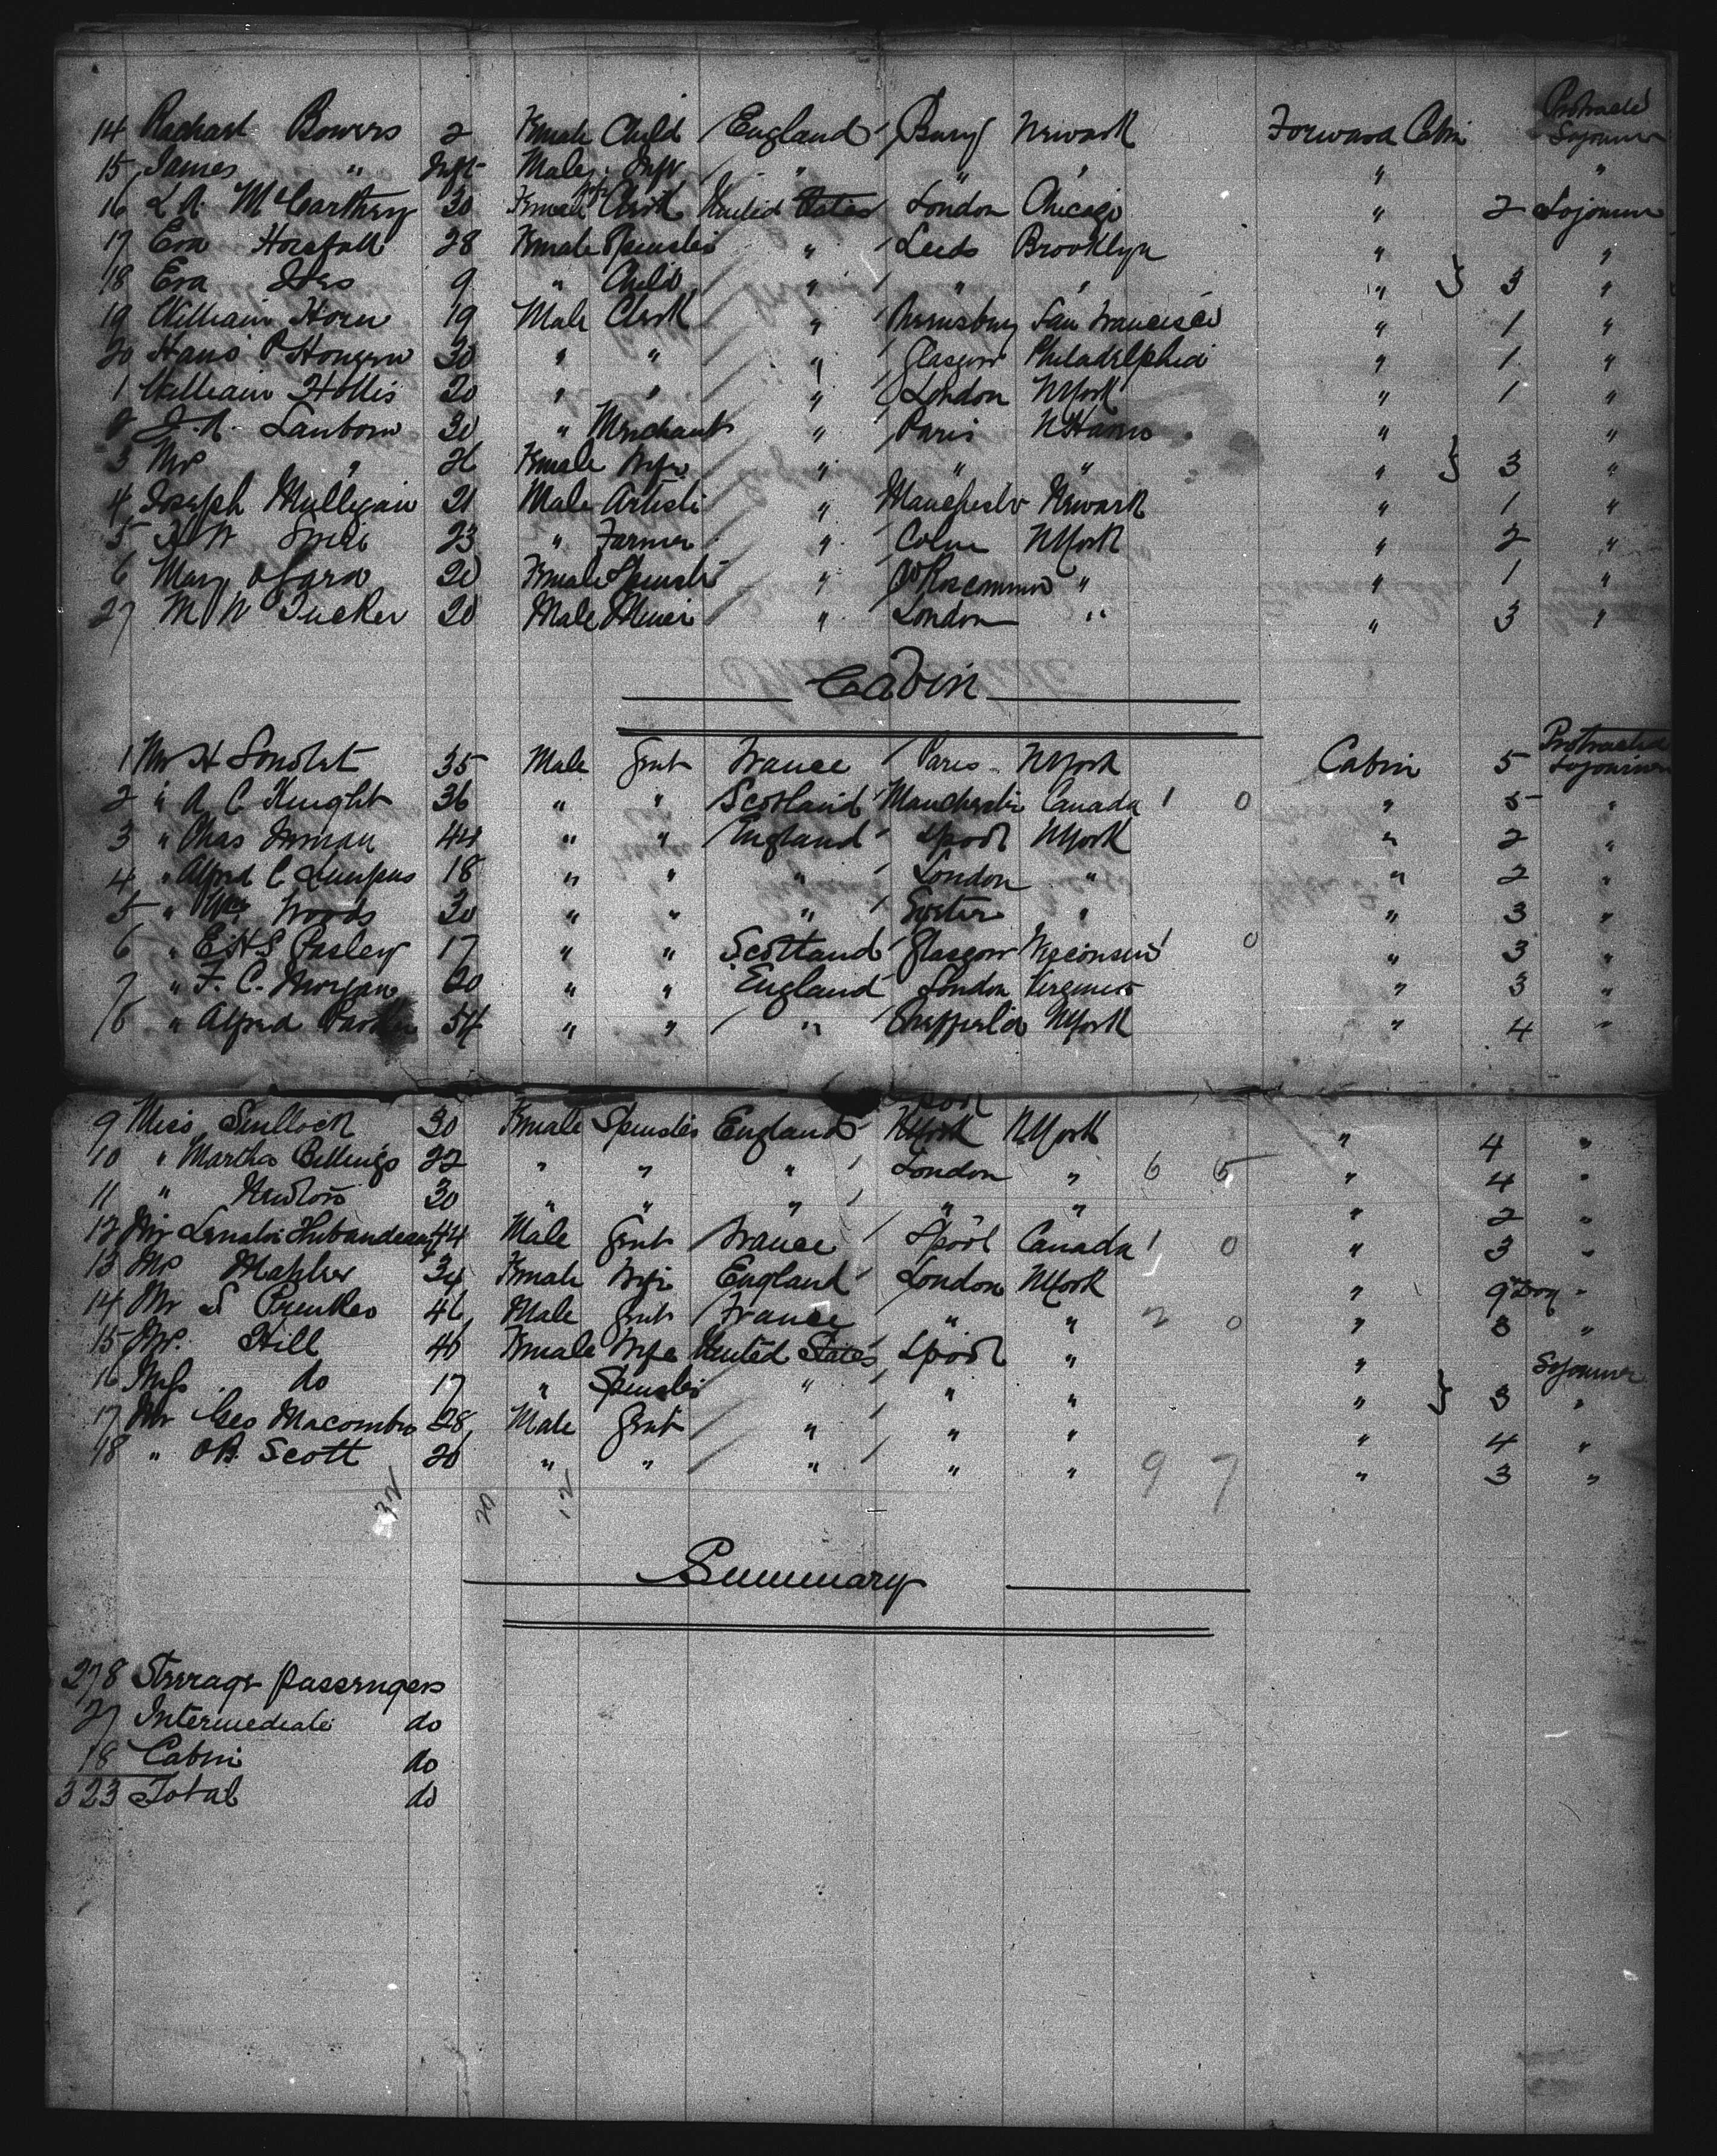 14 Rachael Bowers 2 Female Child England Bury Newark Forward Cabin Protracted Sojourn
15 James " Inft Male Inft " " " " "
16 L A McCarthy 30 Female Wife United States London Chicago " 2 Sojourner
17 Eva Horsfall 28 Female Spinster " Leeds Brooklyn " "
18 Eva 9 " Child " " " " } 3 "
19 William Horn 19 Male Clerk " San Francisco " 1 "
20 Hans P 30 " " " Glasgow Philadelphia " 1 "
1 William Hollis 20 " " " London NYork " 1 "
2 J. A. Lanborn 30 " Merchant " Paris " "
3 Mrs " 26 Female Wife " " " " } 3 "
4 Joseph Mulligan 21 Male Artist " Manchester Newark " 1 "
5 23 " Farmer " Colne NYork " 2 "
6 Mary OGara 20 Female Spinster " Co Roscommon " " 1 "
27 M W Tucker 20 Male " London " " 3 "
Cabin
1 Mr H 35 Male Gent France Paris NYork Cabin 5 Protracted Sojourner
2 " A C Knight 36 " " Scotland Manchester Canada 1 0 " 5 "
3 " Chas Inman 44 " " England Lpool NYork " 2 "
4 " Alfred C 18 " " " London " " 2 "
5 " Woods 30 " " " " " 3 "
6 " E H S Pasley 17 " " Scotland Glasgow Wisconsin 1 0 " 3 "
7 " F. C. Morgan 20 " " England London Virginia " 3 "
8 " Alfred 54 " " " Sheffield NYork " 4 "
9 Miss 30 Female Spinster England Lpool NYork " 4 "
10 " Martha Billings 22 " " " London " 6 5 " 4 "
11 " Newton 30 " " " " " " 2 "
12 Mr 44 Male Gent France Lpool Canada 1 0 " 3 "
13 Mrs 34 Female Wife England London NYork " 9 "
14 Mr S 46 Male Gent France " " 2 0 " 3 "
15 Mrs. Hill 46 Female Wife United States Lpool " " Sojourner
16 Miss do 17 " Spinster " " " " } 3 "
17 Mr Geo Macomber 28 Male Gent " " " " 4 "
18 " O B. Scott 20 " " " " " 9 7 " 3 "
32 20 12
Summary
278 Steerage Passengers
27 Intermediate do
18 Cabin do
323 Total do